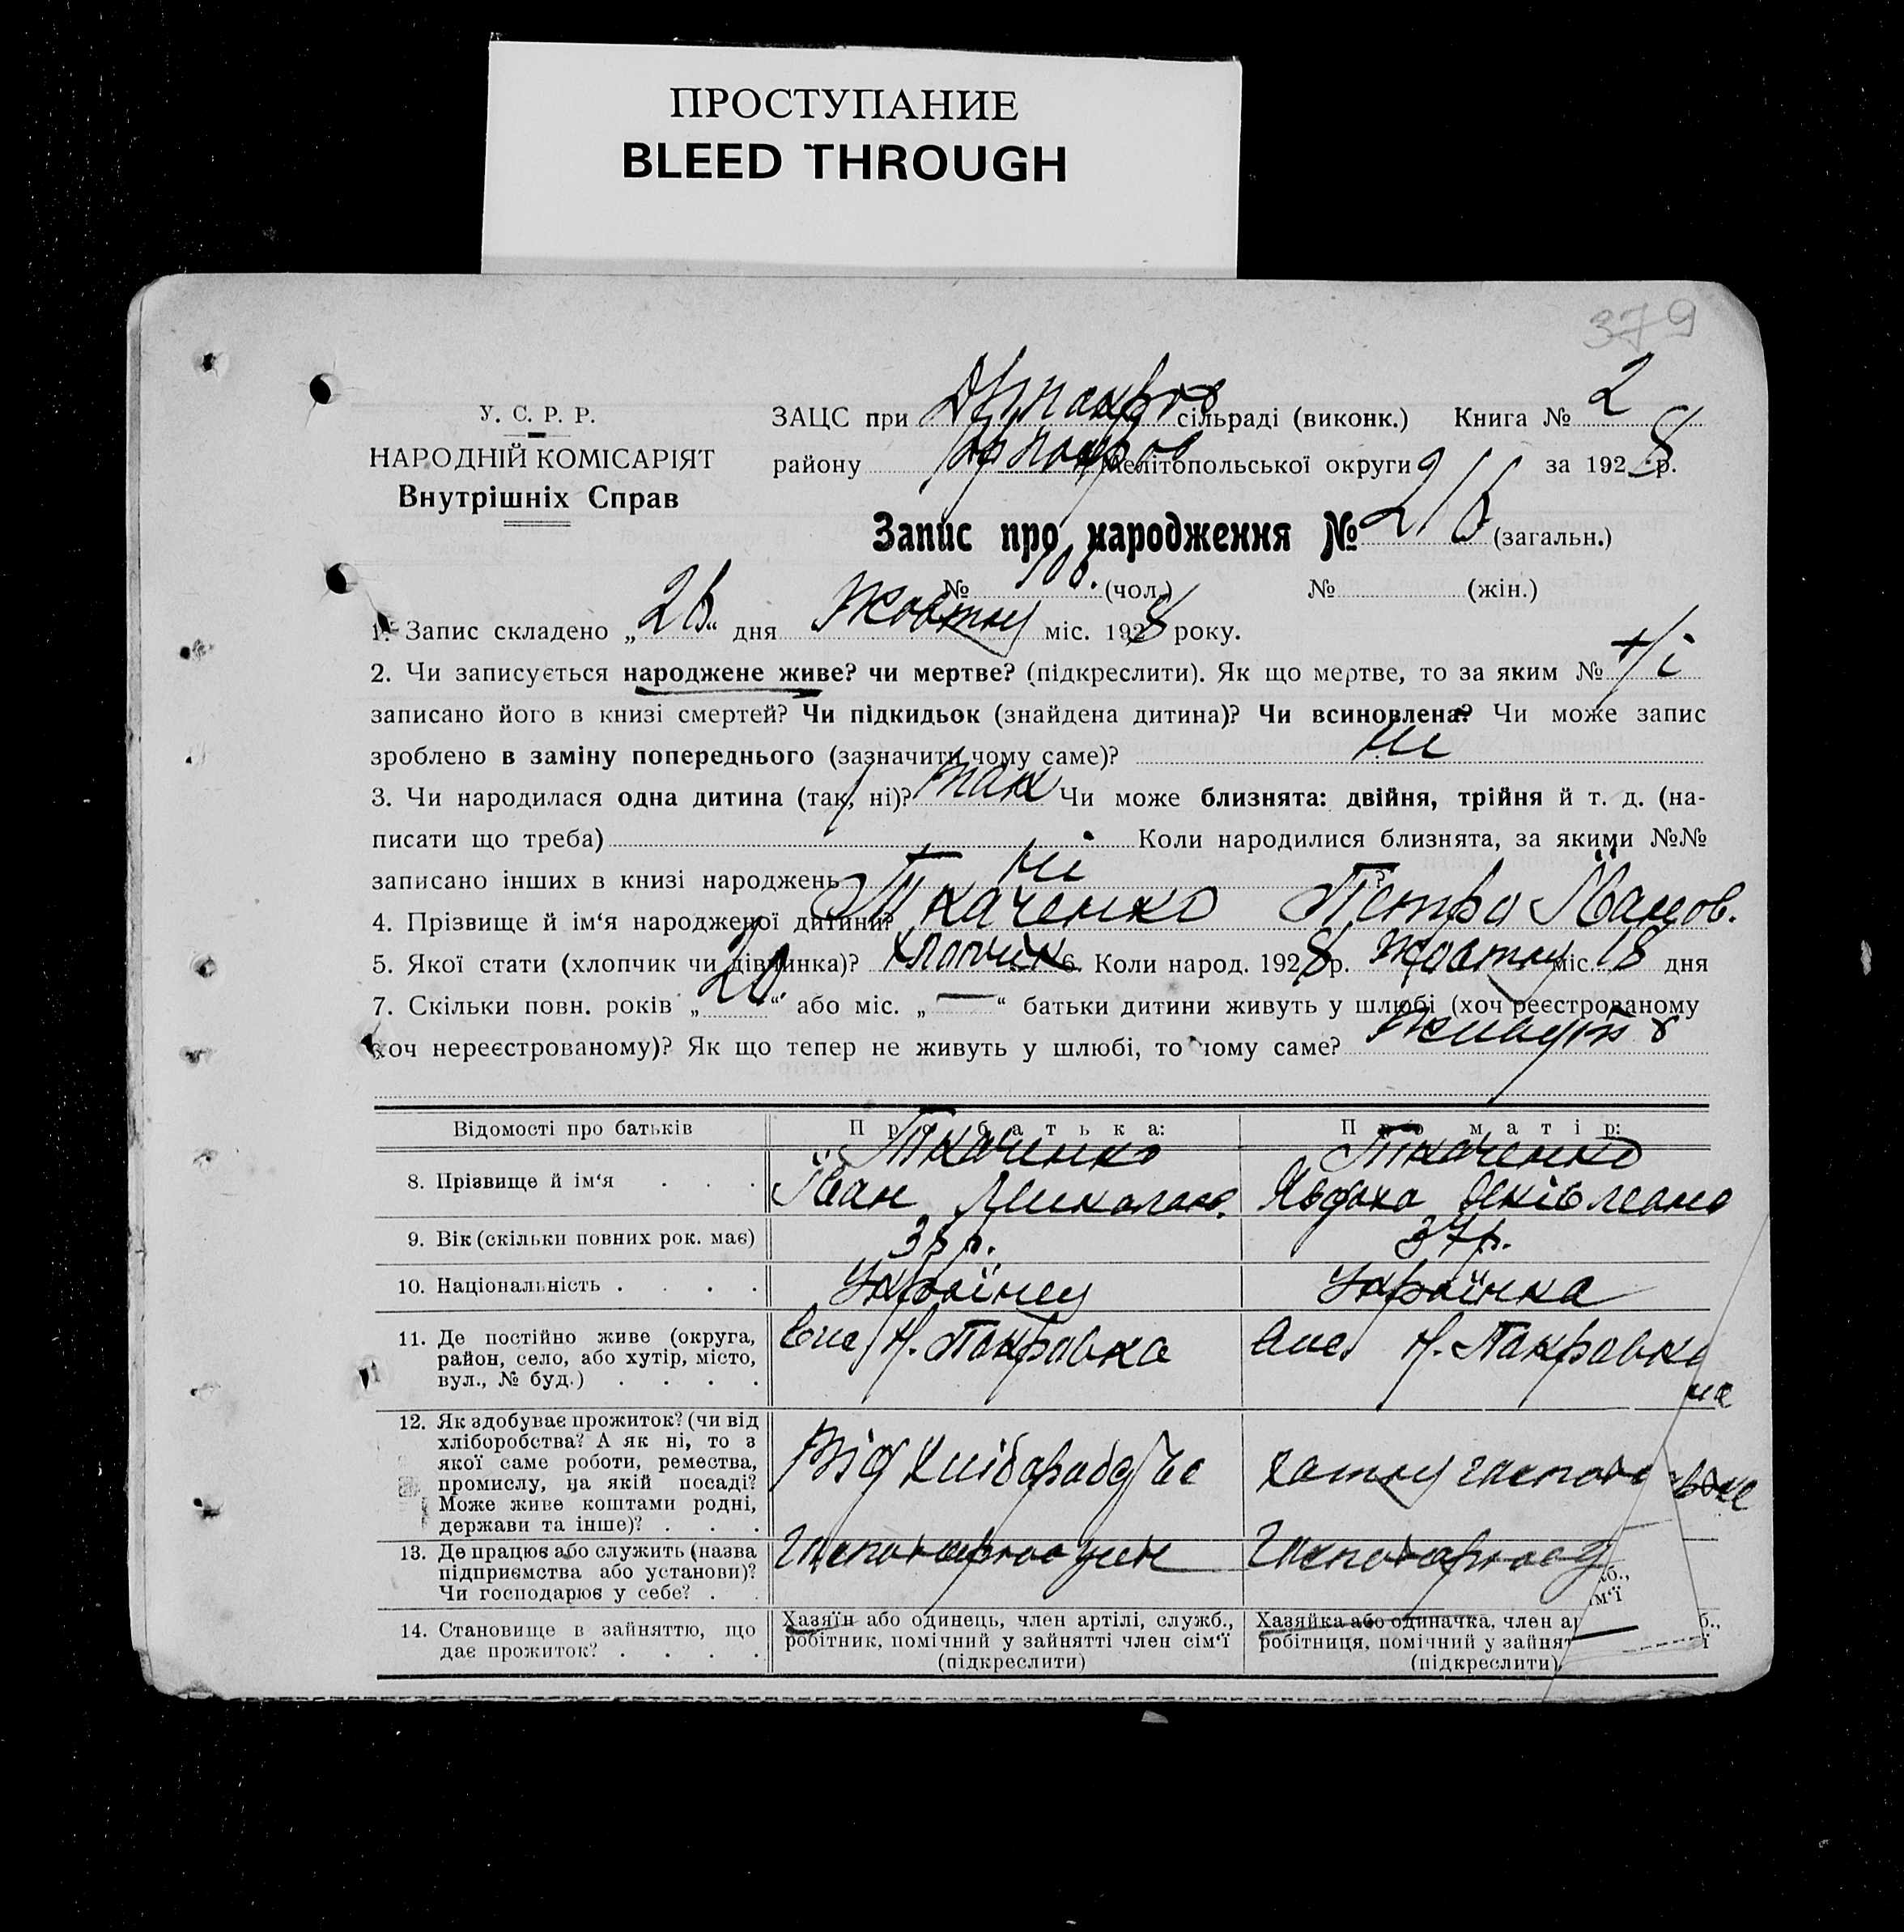 ПРОСТУПАНИЕ
BLEED THROUGH
379
У. С. Р. Р.
НАРОДНІЙ КОМІСАРІЯТ
Внутрішніх Справ
ЗАЦС при сільраді (виконк.) Книга № 2
району Мелітопольської округи за 1928 р.
Запис про народження № 216 (загальн.)
№ 106. (чол.) № (жін.)
1. Запис складено „26“ дня Жовтню міс. 1928 року.
2. Чи записується народжене живе? чи мертве? (підкреслити). Як що мертве, то за яким №
записано його в книзі смертей? Чи підкидьок (знайдена дитина)? Чи всиновлена? Чи може запис
зроблено в заміну попереднього (зазначити чому саме)? ні
3. Чи народилася одна дитина (так, ні)? так Чи може близнята: двійня, трійня й т. д. (на-
писати що треба) Коли народилися близнята, за якими №№
записано інших в книзі народжень ні ?
4. Прізвище й ім‘я народженої дитини? Ткаченко Петро Іванов.
5. Якої стати (хлопчик чи дівчинка)? хлопчик 6. Коли народ. 1928 р. Жовтню міс. 18 дня
7. Скільки повн. років „20“ або міс. „—“ батьки дитини живуть у шлюбі (хоч реєстрованому
хоч нереєстрованому)? Як що тепер не живуть у шлюбі, то чому саме? живуть
Відомості про батьків
Про батька:
Про матір:
8. Прізвище й ім‘я . . .
Ткаченко
Іван Миколаю.
Ткаченко
Явдоха
9. Вік (скільки повних рок. має)
36 р.
37 р.
10. Національність . . . .
Українец
Українка
11. Де постійно живе (округа,
район, село, або хутір, місто,
вул., № буд.) . . . .
Н. Покравка
Н. Покравка
12. Як здобуває прожиток? (чи від
хліборобства? А як ні, то з
якої саме роботи, ремества,
промислу, на якій посаді?
Може живе коштами родні,
держави та інше)? . . .
Від
13. Де працює або служить (назва
підприємства або установи)?
Чи господарює у себе? . .
14. Становище в зайняттю, що
дає прожиток? . . . .
Хазяїн або одинець, член артілі, служб.,
робітник, помічний у зайнятті член сім‘ї
(підкреслити)
Хазяйка або одиначка, член ар
робітниця, помічний у зайнят
(підкреслити)